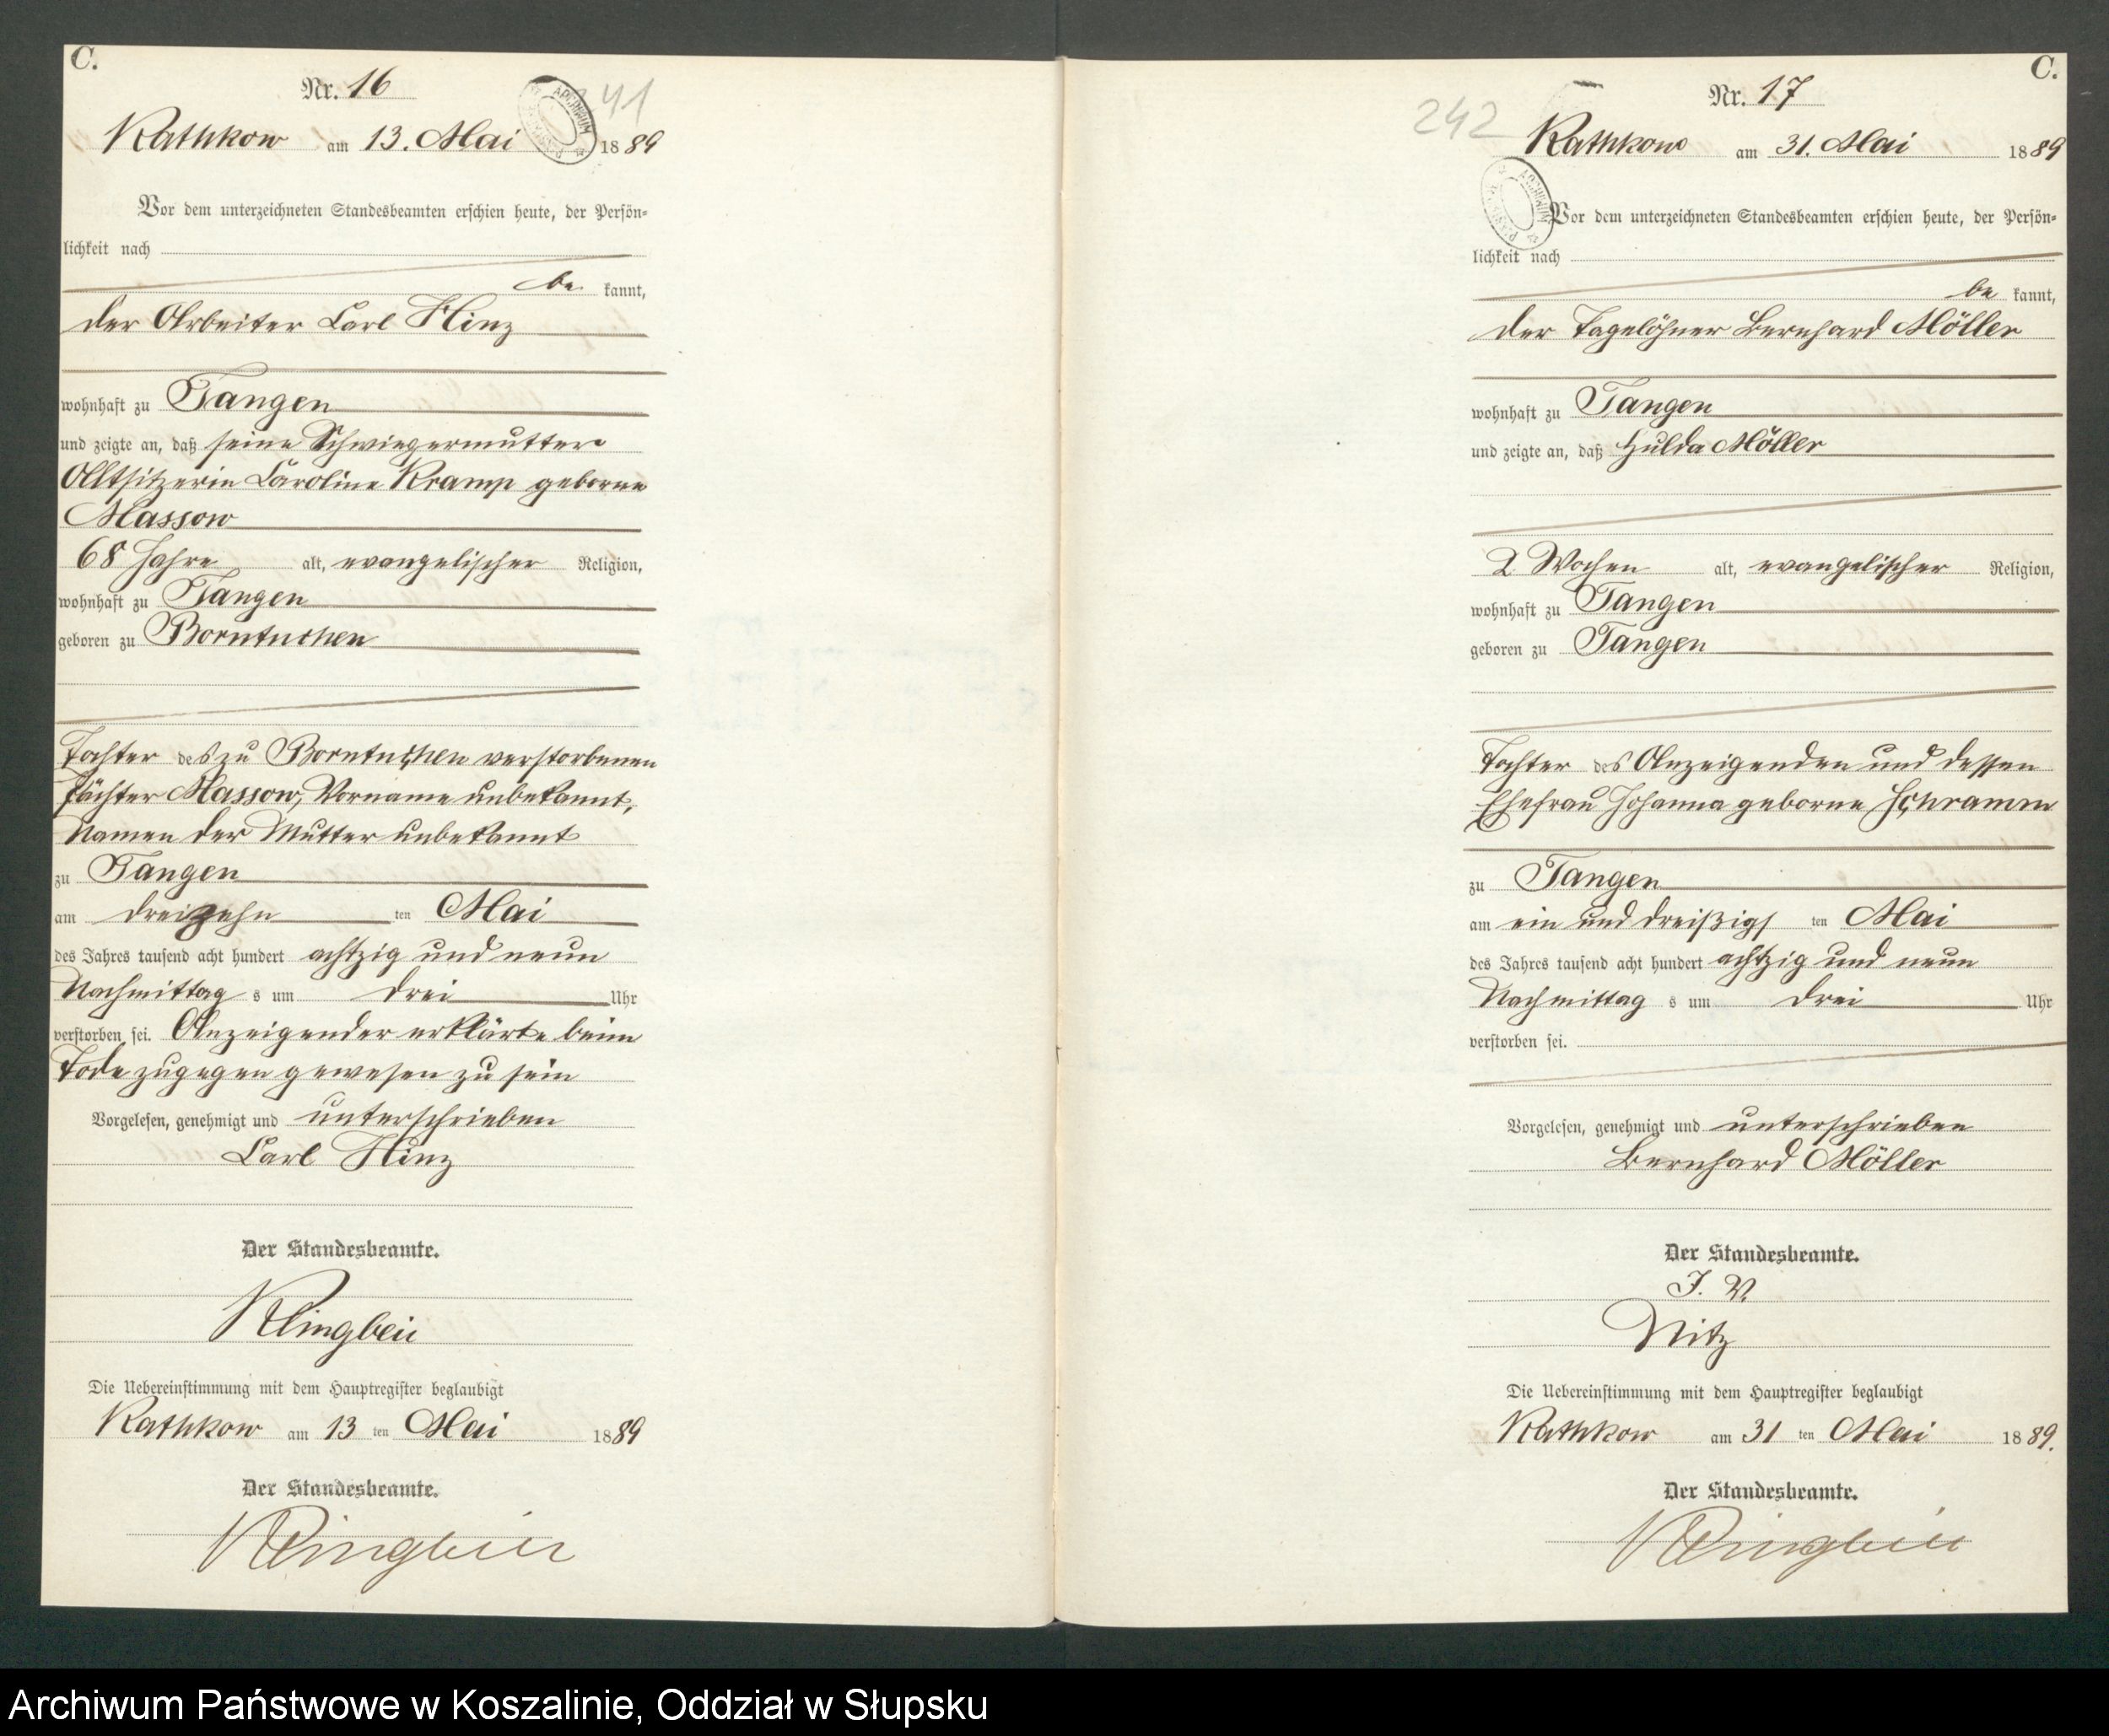 C.
Nr. 16
241
Rathkow am 13. Mai 1889
Vor dem unterzeichneten Standesbeamten erschien heute, der Persön-
lichkeit nach
be kannt,
der Arbeiter Carl Hinz
wohnhaft zu Tangen
und zeigte an, daß seine Schwiegermutter
Altsitzerin Caroline Kramp geborne
Massow
68 Jahre alt, evangelischer Religion,
wohnhaft zu Tangen
geboren zu Borntuchen
Tochter des zu Borntuchen verstorbenen
Pächter Massow, Vorname unbekannt,
Namen der Mutter unbekannt
zu Tangen
am dreizehn ten Mai
des Jahres tausend acht hundert achtzig und neun
Nachmittag s um drei Uhr
verstorben sei. Anzeigender erklärte beim
Tode zugegen gewesen zu sein
Vorgelesen, genehmigt und unterschrieben
Carl Hinz
Der Standesbeamte.
Klingbeil
Die Uebereinstimmung mit dem Hauptregister beglaubigt
Rathkow am 13 ten Mai 1889
Der Standesbeamte.
Klingbeil
C.
Nr. 17
242
Rathkow am 31. Mai 1889
Vor dem unterzeichneten Standesbeamten erschien heute, der Persön-
lichkeit nach
be kannt,
der Tagelöhner Bernhard Möller
wohnhaft zu Tangen
und zeigte an, daß Hulda Möller
2 Wochen alt, evangelischer Religion,
wohnhaft zu Tangen
geboren zu Tangen
Tochter des Anzeigenden und dessen
Ehefrau Johanna geborne Schramm
zu Tangen
am ein und dreißigs ten Mai
des Jahres tausend acht hundert achtzig und neun
Nachmittag s um drei Uhr
verstorben sei.
Vorgelesen, genehmigt und unterschrieben
Bernhard Möller
Der Standesbeamte.
I. V.
Nitz
Die Uebereinstimmung mit dem Hauptregister beglaubigt
Rathkow am 31 ten Mai 1889.
Der Standesbeamte.
Klingbeil
Archiwum Państwowe w Koszalinie, Oddział w Słupsku